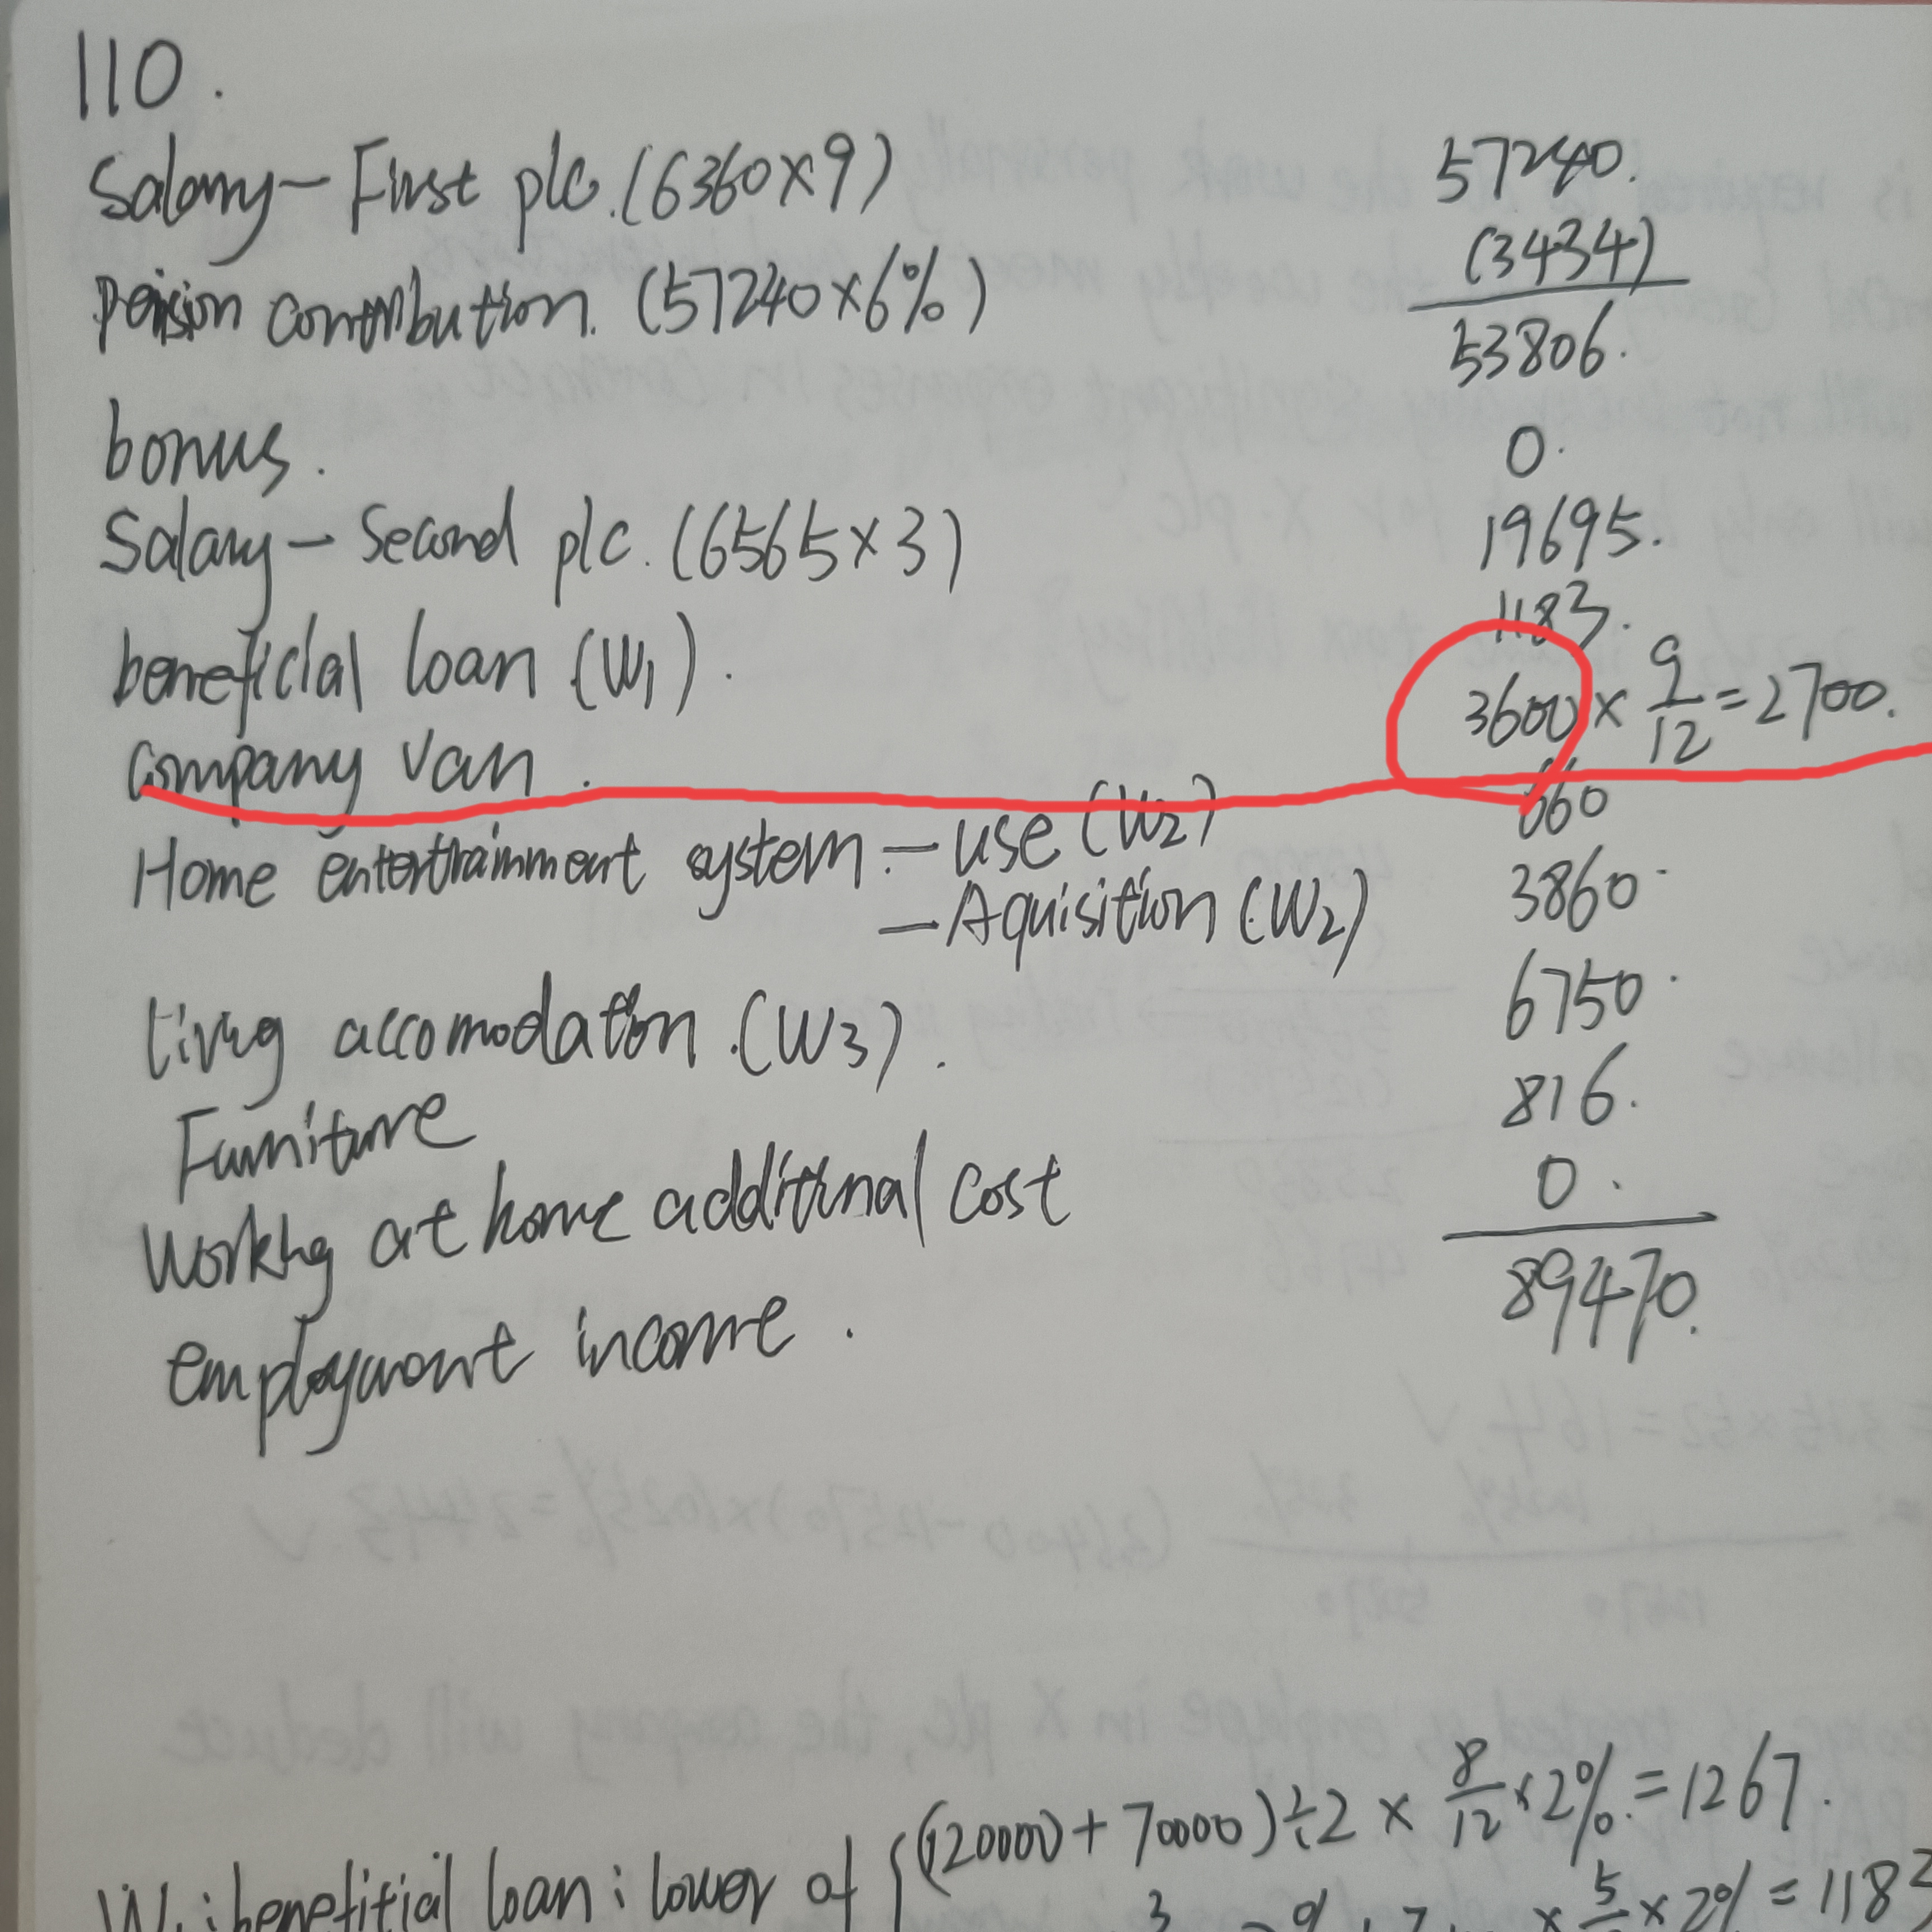 110.
Salary - First plc. (6360×9) 57240.
pension contribution. (57240×6%) (3434)
53806.
bonus. 0.
Salary - Second plc. (6565×3) 19695.
beneficial loan (W1). 1183.
company van. 3600 × 9/12 = 2700.
Home entertrainment system - use (W2) 660
- Aquisition (W2) 3860.
living accomodation. (W3). 6750.
Furniture 816.
Working at home additional cost 0.
employment income. 89470.
W1: benefitial loan: lower of { (120000 + 70000) ÷ 2 × 8/12 × 2% = 1267.
× 5/ × 2% = 118